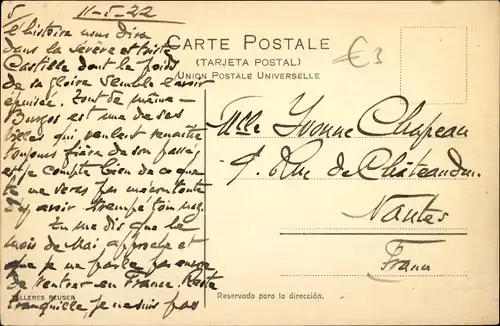 5 11-5-22
l'histoire nous dira
dans la sévère et triste
Castille dont le poids
de sa gloire semble l'avoir
épuisée. Tout de même
Burgos est une de ses
villes qui veulent renaître
toujours fière de son passé,
et je compte bien de ce que
te ne veras pas mécontente
d'y avoir trempé ton
Tu me dis que le
mois de Mai approche et
que je ne parle pas encore
de rentrer en France. Reste
tranquille, je ne suis pas
CARTE POSTALE
(TARJETA POSTAL)
UNION POSTALE UNIVERSELLE
€3
Mlle Yvonne Chapeau
9. Rue de Châteaudun.
Nantes
France
TALLERES REUSER
Reservado para la dirección.